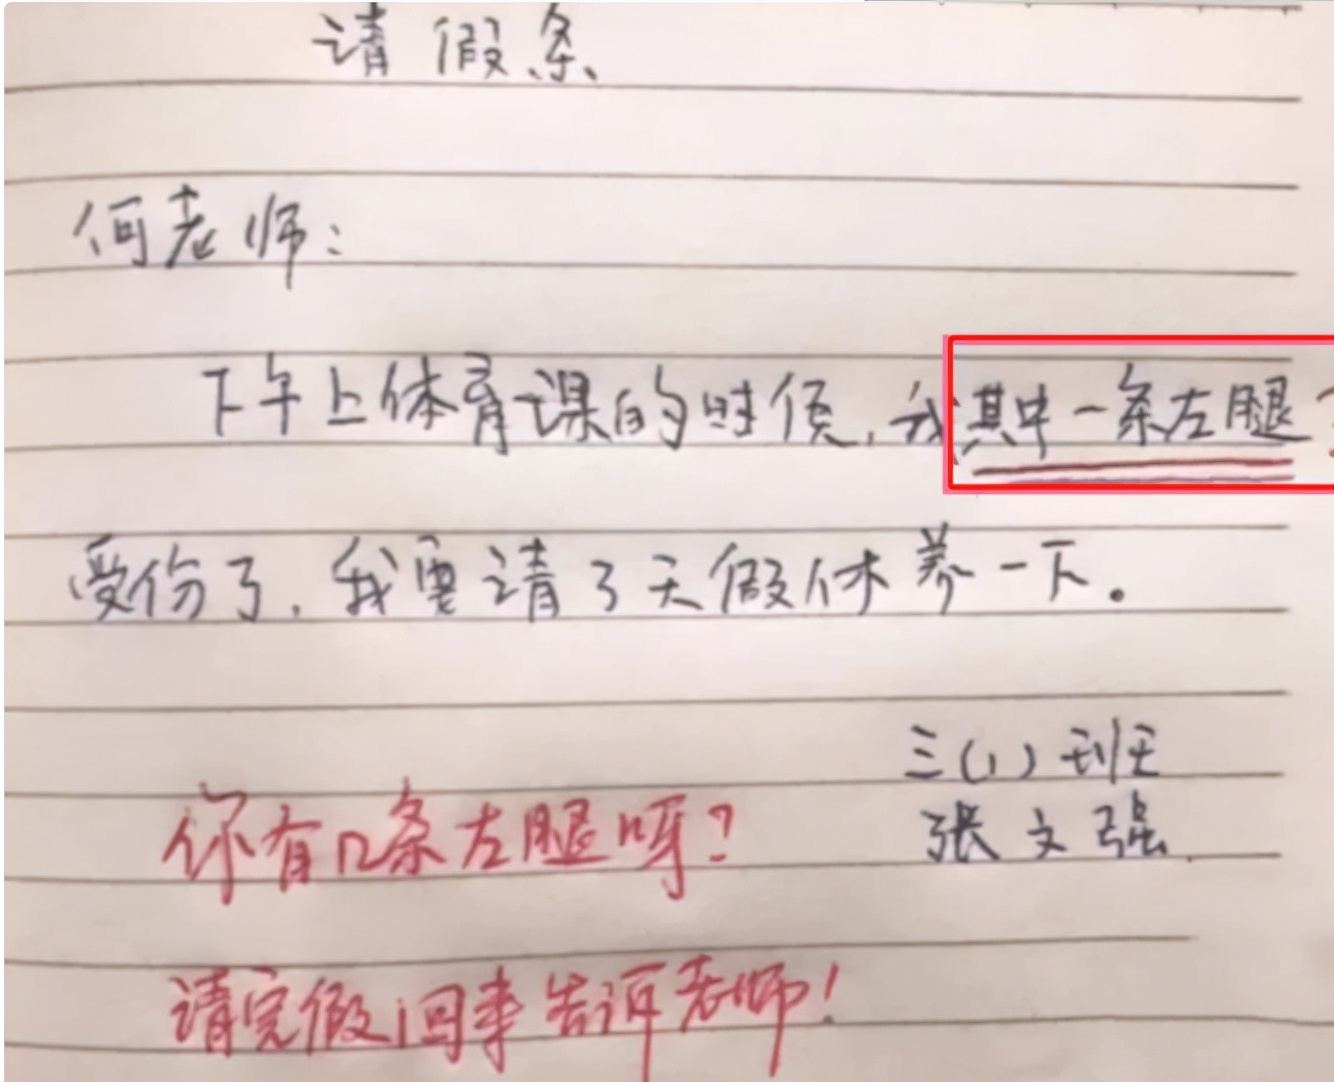 请假条
何老师：
下午上体育课的时候，我其中一条左腿
受伤了，我要请3天假休养一下。
三(1)班
张文强
你有几条左腿呀？
请完假回来告诉老师！